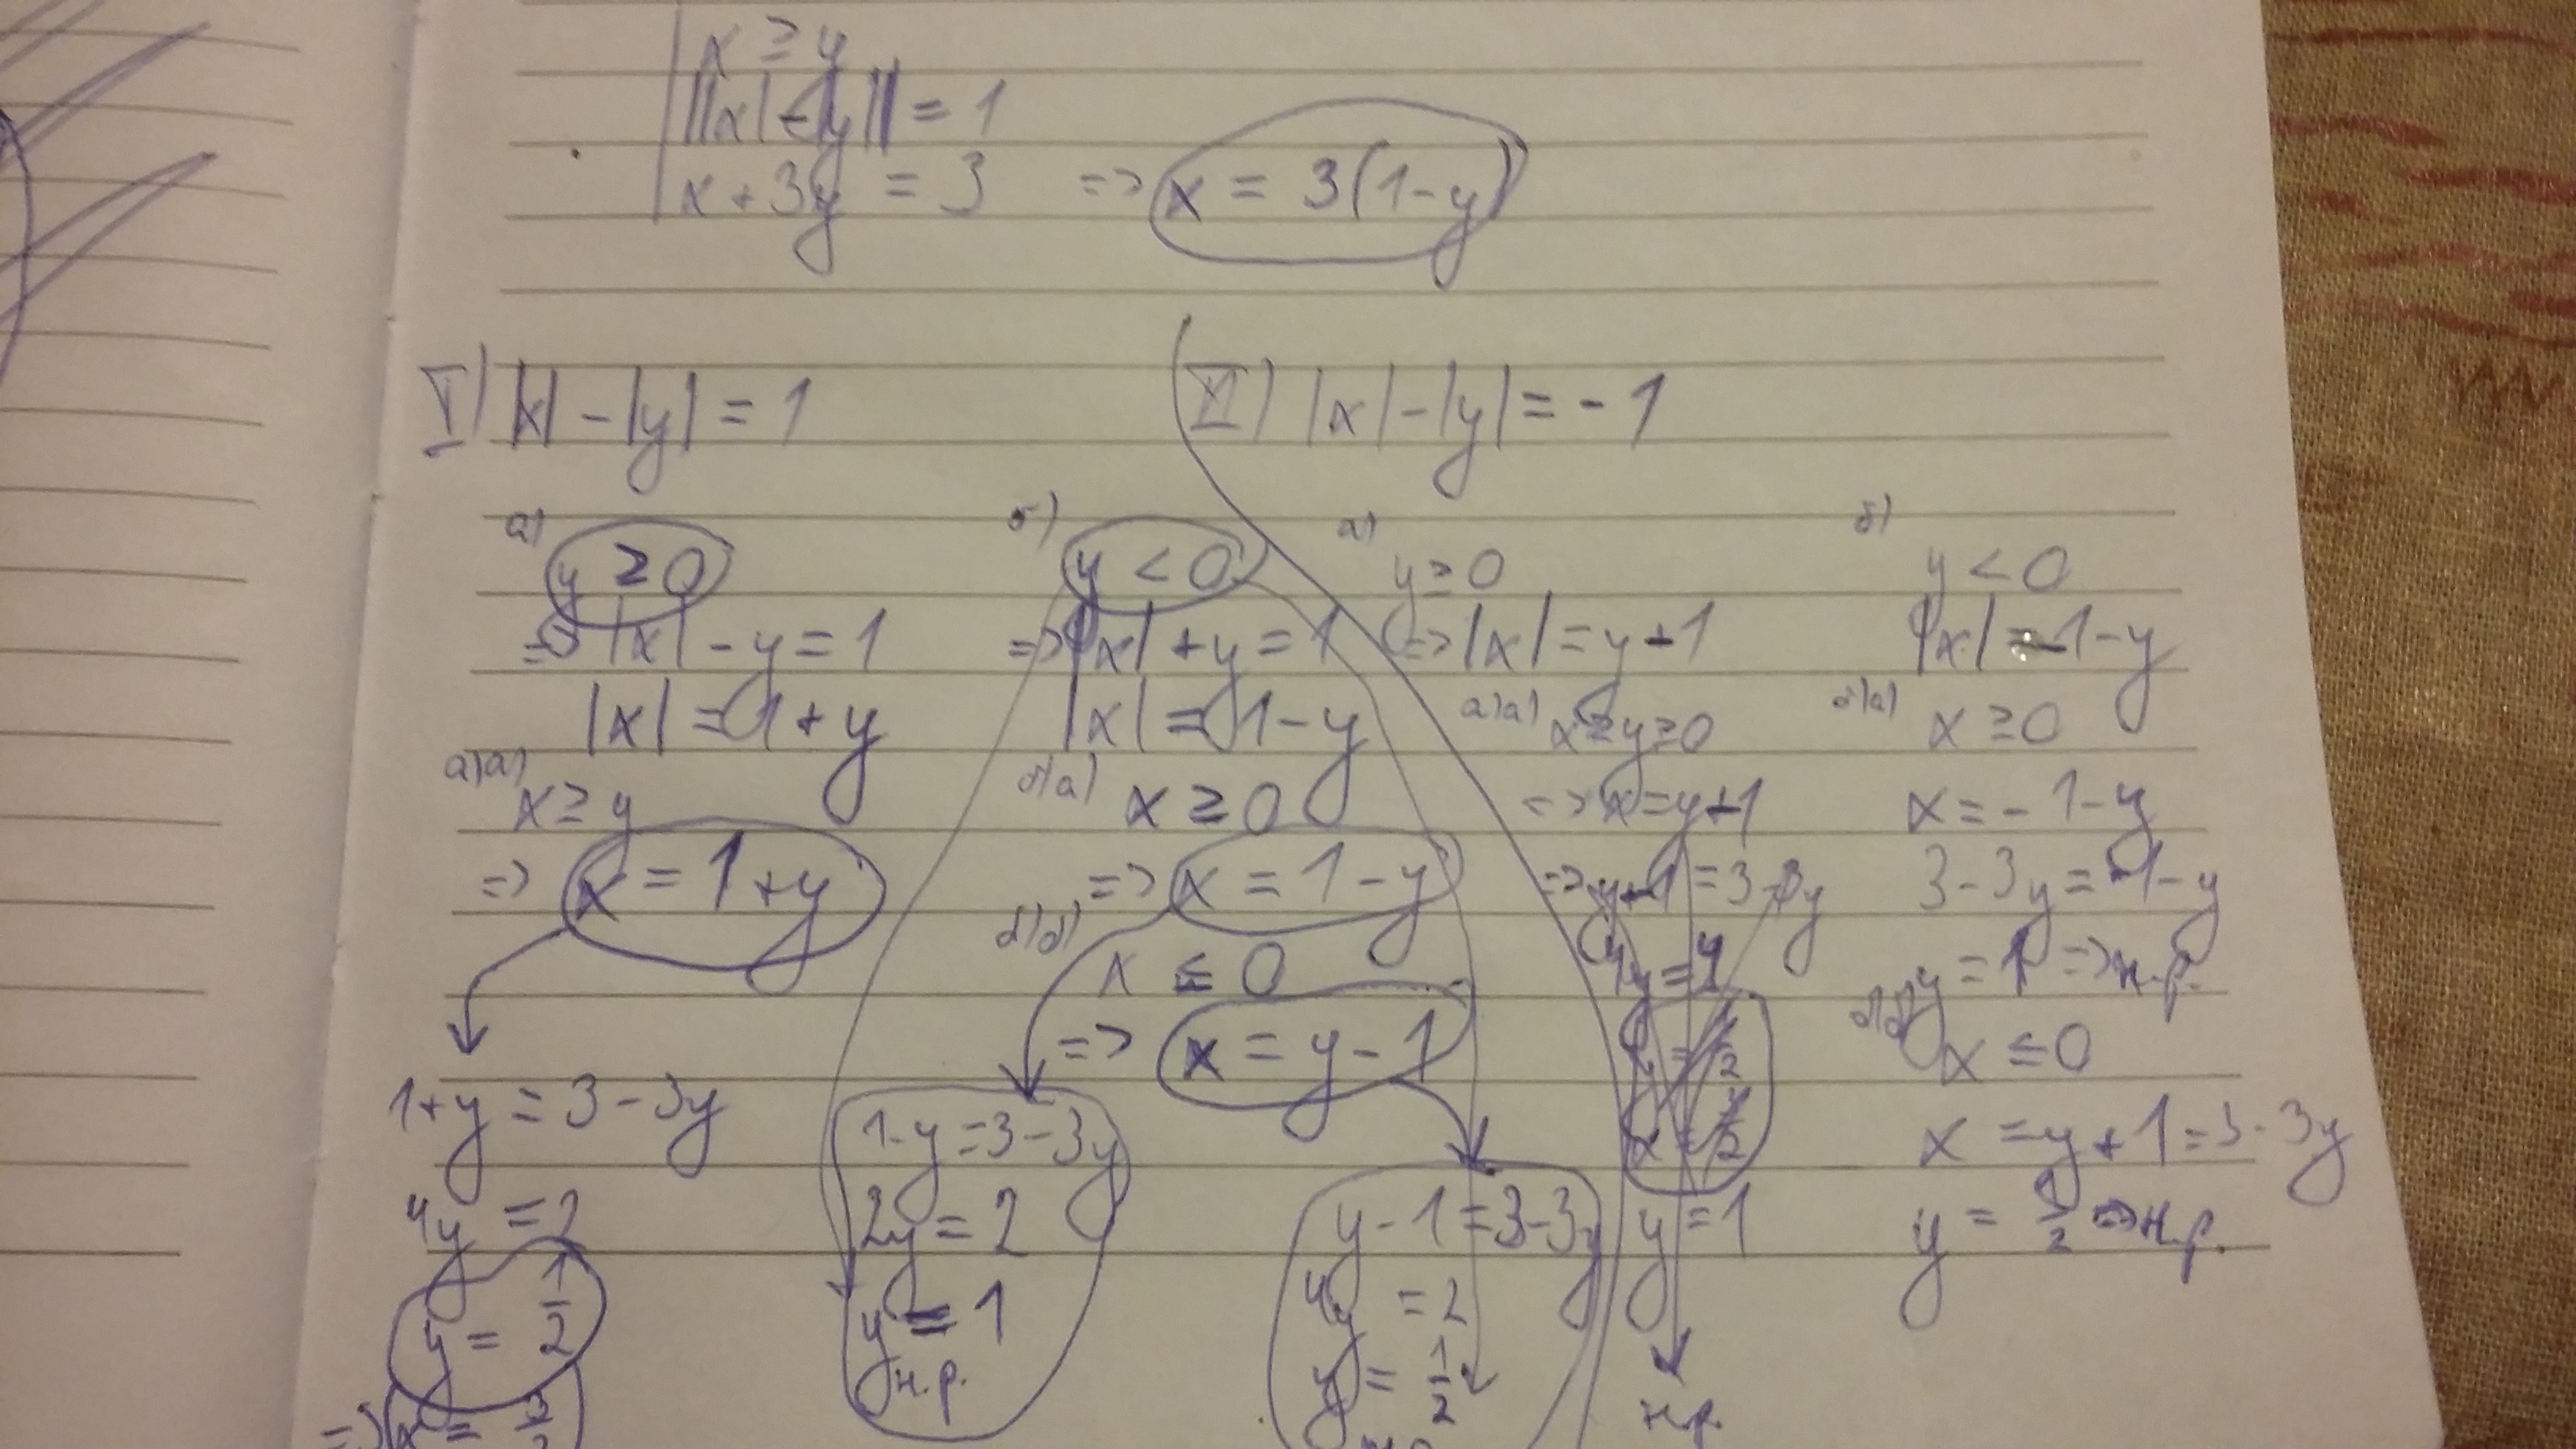 x ≥ y
||x| - |y|| = 1
x + 3y = 3 => x = 3(1-y)
I) |x| - |y| = 1
а) y ≥ 0
=> |x| - y = 1
|x| = 1 + y
а)а) x ≥ y
=> x = 1 + y
1+y = 3 - 3y
4y = 2
y = 1/2
=> x = 3/2
б) y < 0
=> |x| + y = 1
|x| = 1 - y
б)а) x ≥ 0
=> x = 1 - y
б)б) x ≤ 0
=> x = y - 1
1-y = 3-3y
2y = 2
y = 1
н.р.
y - 1 = 3-3y
4y = 2
y = 1/2
II) |x| - |y| = - 1
а) y ≥ 0
=> |x| = y - 1
а)а) x ≥ y ≥ 0
=> x = y - 1
=> y - 1 = 3 - 3y
y = 1
н.р.
б) y < 0
|x| = -1 - y
б)а) x ≥ 0
x = - 1 - y
3 - 3y = -1 - y
=> н.р.
б)б) x ≤ 0
x = y + 1 = 3 - 3y
y = 1/2 => н.р.